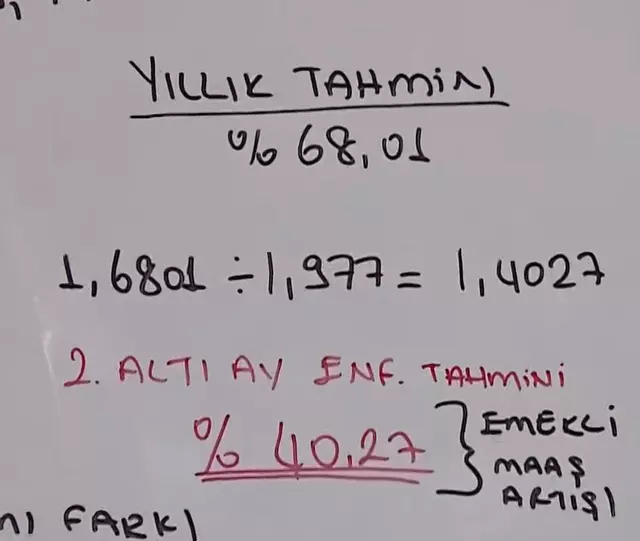 YILLIK TAHMİNİ
% 68,01
1,6801 ÷ 1,977 = 1,4027
2. ALTI AY ENF. TAHMİNİ
% 40,27
EMEKLİ
MAAŞ
ARTIŞI
FARKI